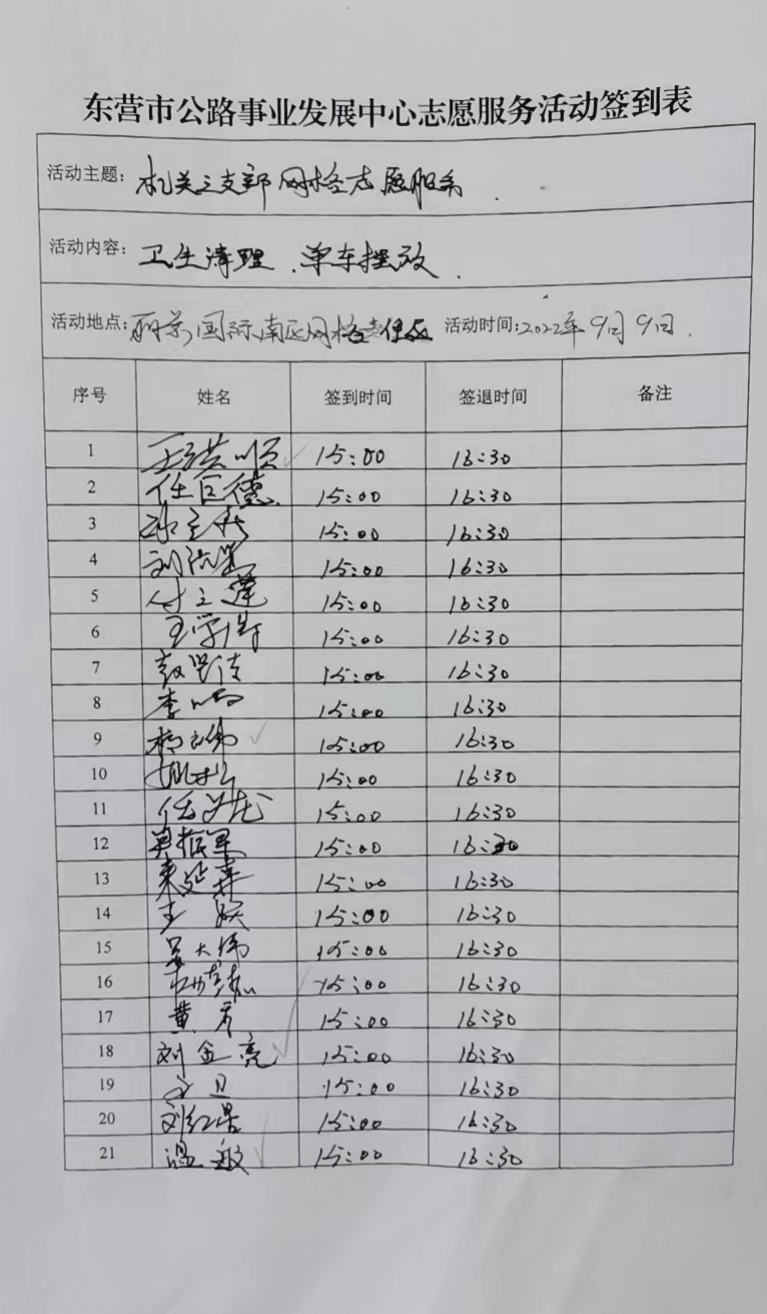 东营市公路事业发展中心志愿服务活动签到表
活动主题: 机关三支部 网格志愿服务
活动内容: 卫生清理、单车摆放
活动地点: 丽景国际南区网格责任区 活动时间:2022年9月9日.
序号 姓名 签到时间 签退时间 备注
1 王洪顺 15:00 16:30
2 任巨德 15:00 16:30
3 15:00 16:30
4 刘 15:00 16:30
5 付立莲 15:00 16:30
6 王学 15:00 16:30
7 15:00 16:30
8 李鸣 15:00 16:30
9 15:00 16:30
10 15:00 16:30
11 任 龙 15:00 16:30
12 振军 15:00 16:30
13 15:00 16:30
14 王 15:00 16:30
15 吴大伟 15:00 16:30
16 15:00 16:30
17 黄 15:00 16:30
18 刘金亮 15:00 16:30
19 15:00 16:30
20 刘红 15:00 16:30
21 温敏 15:00 16:30